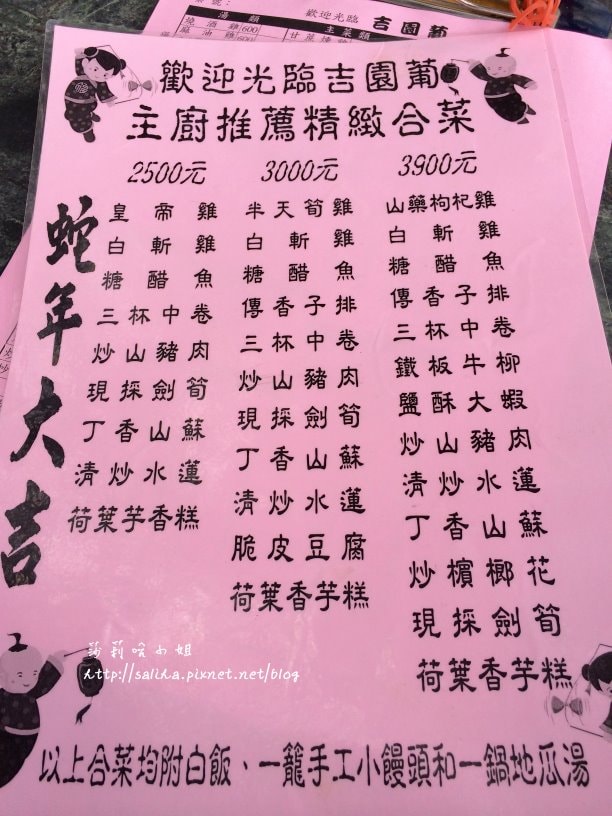 歡迎光臨 吉園葡
湯類 主菜類
燒酒雞 600
麻油雞 600
歡迎光臨吉園葡
主廚推薦精緻合菜
蛇年大吉
2500元
皇帝雞
白斬雞
糖醋魚
三杯中卷
炒山豬肉
現採劍筍
丁香山蘇
清炒水蓮
荷葉芋香糕
3000元
半天筍雞
白斬雞
糖醋魚
傳香子排
三杯中卷
炒山豬肉
現採劍筍
丁香山蘇
清炒水蓮
脆皮豆腐
荷葉香芋糕
3900元
山藥枸杞雞
白斬雞
糖醋魚
傳香子排
三杯中卷
鐵板牛柳
鹽酥大蝦
炒山豬肉
清炒水蓮
丁香山蘇
炒檳榔花
現採劍筍
荷葉香芋糕
莎莉哈小姐
http://saliha.pixnet.net/blog
以上合菜均附白飯、一籠手工小饅頭和一鍋地瓜湯